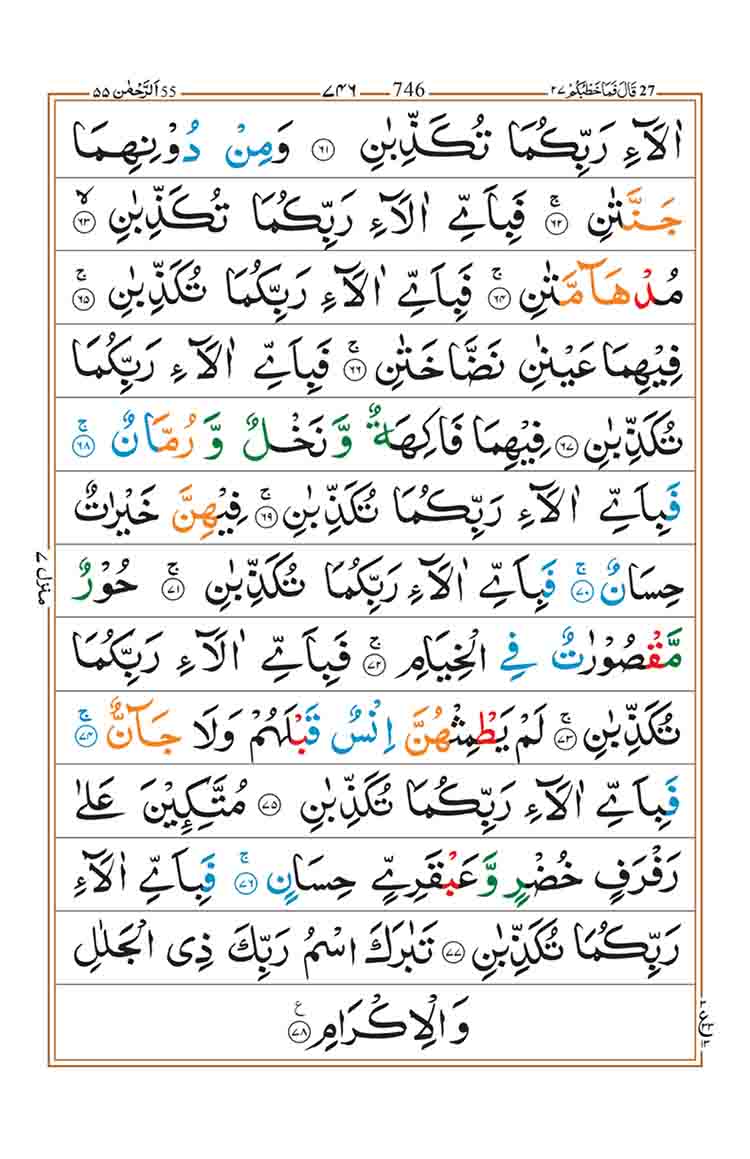 27 قَالَ فَمَا خَطْبُكُمْ ٢٧ 746 ٧٤٦ 55 اَلرَّحْمٰن ٥٥
اٰلَآءِ رَبِّكُمَا تُكَذِّبٰنِ ﴿٦١﴾ وَمِنْ دُوْنِهِمَا
جَنَّتٰنِ ۚ﴿٦٢﴾ فَبِاَيِّ اٰلَآءِ رَبِّكُمَا تُكَذِّبٰنِ ۙ﴿٦٣﴾
مُدْهَآمَّتٰنِ ۚ﴿٦٤﴾ فَبِاَيِّ اٰلَآءِ رَبِّكُمَا تُكَذِّبٰنِ ۚ﴿٦٥﴾
فِيْهِمَا عَيْنٰنِ نَضَّاخَتٰنِ ۚ﴿٦٦﴾ فَبِاَيِّ اٰلَآءِ رَبِّكُمَا
تُكَذِّبٰنِ ﴿٦٧﴾ فِيْهِمَا فَاكِهَةٌ وَّنَخْلٌ وَّرُمَّانٌ ۚ﴿٦٨﴾
فَبِاَيِّ اٰلَآءِ رَبِّكُمَا تُكَذِّبٰنِ ۚ﴿٦٩﴾ فِيْهِنَّ خَيْرٰتٌ
حِسَانٌ ۚ﴿٧٠﴾ فَبِاَيِّ اٰلَآءِ رَبِّكُمَا تُكَذِّبٰنِ ۚ﴿٧١﴾ حُوْرٌ
مَّقْصُوْرٰتٌ فِي الْخِيَامِ ۚ﴿٧٢﴾ فَبِاَيِّ اٰلَآءِ رَبِّكُمَا
تُكَذِّبٰنِ ۚ﴿٧٣﴾ لَمْ يَطْمِثْهُنَّ اِنْسٌ قَبْلَهُمْ وَلَا جَآنٌّ ۚ﴿٧٤﴾
فَبِاَيِّ اٰلَآءِ رَبِّكُمَا تُكَذِّبٰنِ ﴿٧٥﴾ مُتَّكِـِٕيْنَ عَلٰى
رَفْرَفٍ خُضْرٍ وَّعَبْقَرِيٍّ حِسَانٍ ۚ﴿٧٦﴾ فَبِاَيِّ اٰلَآءِ
رَبِّكُمَا تُكَذِّبٰنِ ﴿٧٧﴾ تَبٰرَكَ اسْمُ رَبِّكَ ذِى الْجَلٰلِ
وَالْاِكْرَامِ ﴿٧٨﴾ ع
منزل ٧